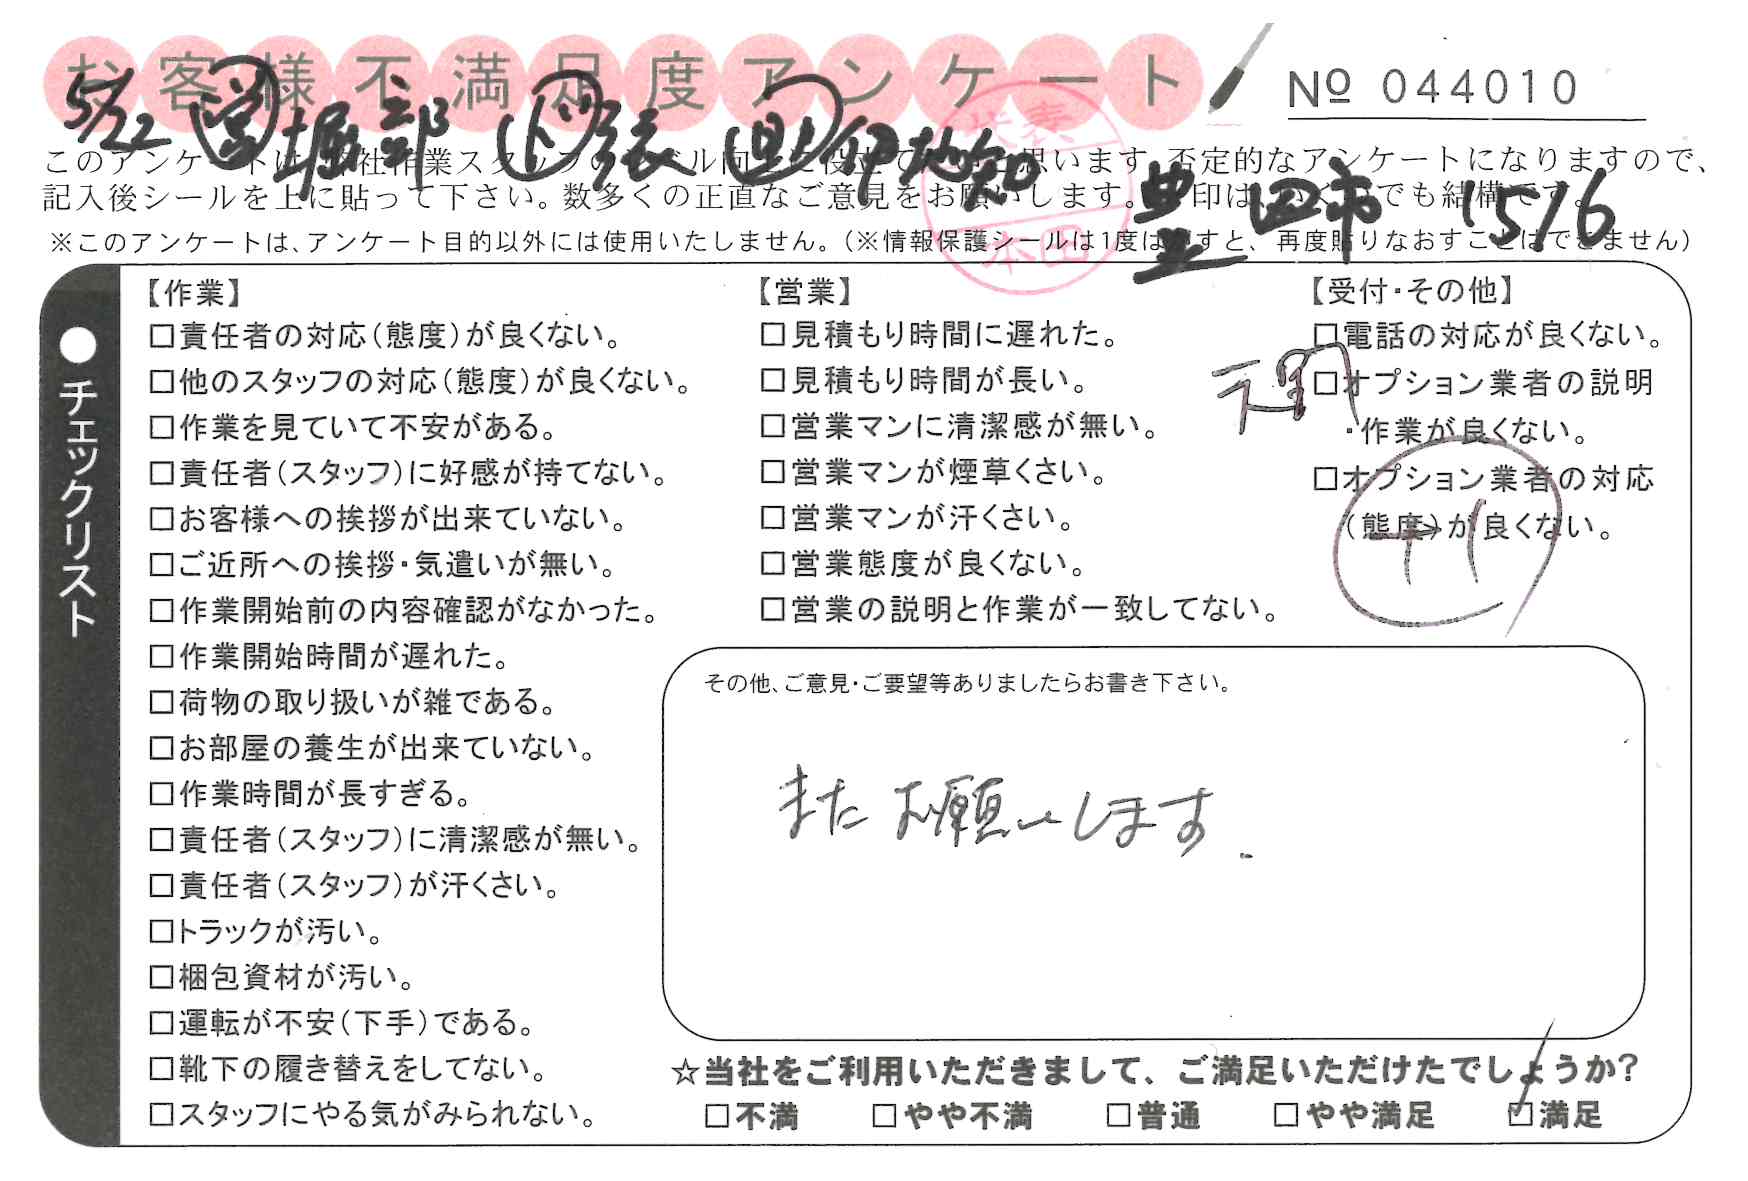 お客様不満足度アンケート
№ 044010
5/22 営 堀部 ド 張 助 伊地知
豊田市 15/6
このアンケートは、弊社作業スタッフのレベル向上に役立てたいと思います。否定的なアンケートになりますので、
記入後シールを上に貼って下さい。数多くの正直なご意見をお願いします。 印は、いくつでも結構です。
※このアンケートは、アンケート目的以外には使用いたしません。（※情報保護シールは1度はがすと、再度貼りなおすことはできません）
代表
本田
●チェックリスト
【作業】
□責任者の対応（態度）が良くない。
□他のスタッフの対応（態度）が良くない。
□作業を見ていて不安がある。
□責任者（スタッフ）に好感が持てない。
□お客様への挨拶が出来ていない。
□ご近所への挨拶・気遣いが無い。
□作業開始前の内容確認がなかった。
□作業開始時間が遅れた。
□荷物の取り扱いが雑である。
□お部屋の養生が出来ていない。
□作業時間が長すぎる。
□責任者（スタッフ）に清潔感が無い。
□責任者（スタッフ）が汗くさい。
□トラックが汚い。
□梱包資材が汚い。
□運転が不安（下手）である。
□靴下の履き替えをしてない。
□スタッフにやる気がみられない。
【営業】
□見積もり時間に遅れた。
□見積もり時間が長い。
□営業マンに清潔感が無い。
□営業マンが煙草くさい。
□営業マンが汗くさい。
□営業態度が良くない。
□営業の説明と作業が一致してない。
【受付・その他】
□電話の対応が良くない。
□オプション業者の説明
・作業が良くない。
□オプション業者の対応
（態度）が良くない。
+1
その他、ご意見・ご要望等ありましたらお書き下さい。
またお願いします.
☆当社をご利用いただきまして、ご満足いただけたでしょうか?
□不満 □やや不満 □普通 □やや満足 ☑満足